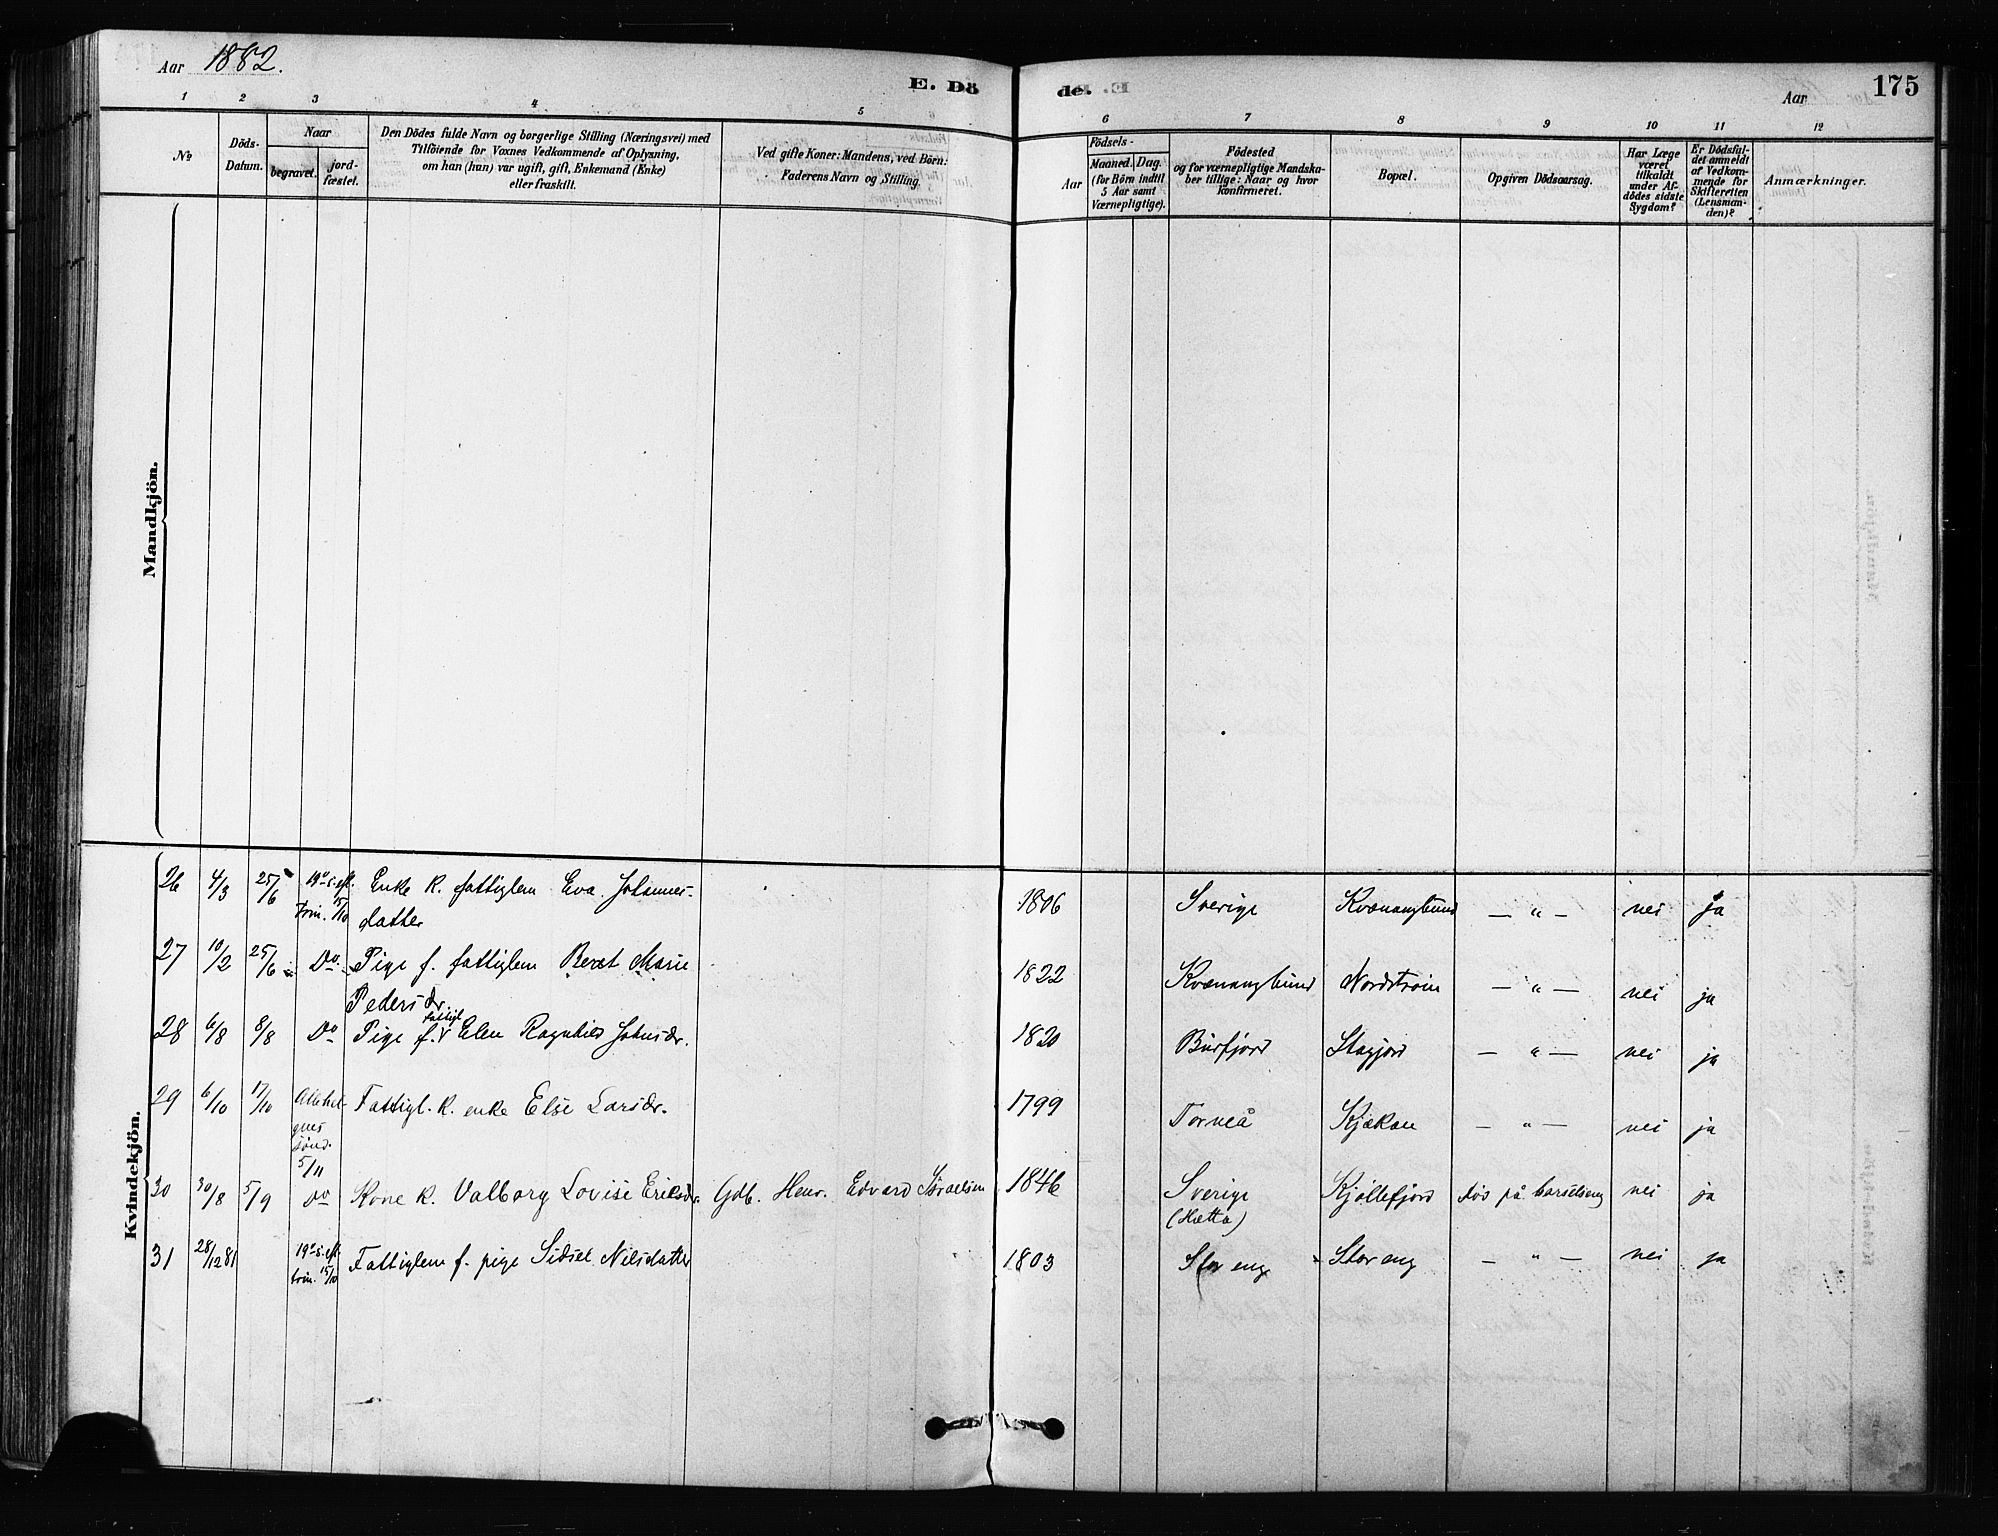 Aar 1882.
E. Dö
de.
Aar
175
1 2 3 4 5 6 7 8 9 10 11 12
№
Döds-
Datum.
Naar
begravet.
jord-
fæstet.
Den Dödes fulde Navn og borgerlige Stilling (Næringsvei) med
Tilföiende for Voxnes Vedkommende af Oplysning,
om han (hun) var ugift, gift, Enkemand (Enke)
eller fraskilt.
Ved gifte Koner: Mandens, ved Börn:
Faderens Navn og Stilling.
Födsels-
Aar
Maaned. Dag.
(for Börn indtil
5 Aar samt
Værnepligtige).
Födested
og for værnepligtige Mandska-
ber tillige: Naar og hvor
konfirmeret.
Bopæl.
Opgiven Dödsaarsag.
Har Læge
været
tilkaldt
under Af-
dödes sidste
Sygdom?
Er Dödsfal-
det anmeldt
af Vedkom-
mende for
Skifteretten
(Lensman-
den)?
Anmærkninger.
Mandkjön.
Kvindekjön.
26 4/3 25/6 19de s. eft. Enke k. fattiglem Eva Johannes- 1806 Sverige Kvænangbund — " — nei ja
trin. 15/10 datter
27 10/2 25/6 Do. Pige f. fattiglem Beret Marie 1822 Kvænangbund Nordstrøm — " — nei ja
Pedersdr.
fattigl
28 6/8 8/8 Do Pige f. Elen Ragnhild Johnsdr. 1820 Burfjord Stajord — " — nei ja
29 6/10 17/10 Allehel- Fattigl. k. enke Else Larsdr. 1799 Torneå Kjækan — " — nei ja
gnes
sönd.
5/11
30 30/8 5/9 Do Kone k. Valborg Lovise Eriksdr. Gdb. Henr. Edvard Israelsen 1846 Sverige Kjøllefjord døs på barselseng nei ja
(Hætta)
31 28/12 81 19de s. eft. Fattiglem f. pige Sidsel Nilsdatter 1803 Storeng Storeng — " — nei ja
trin. 15/10